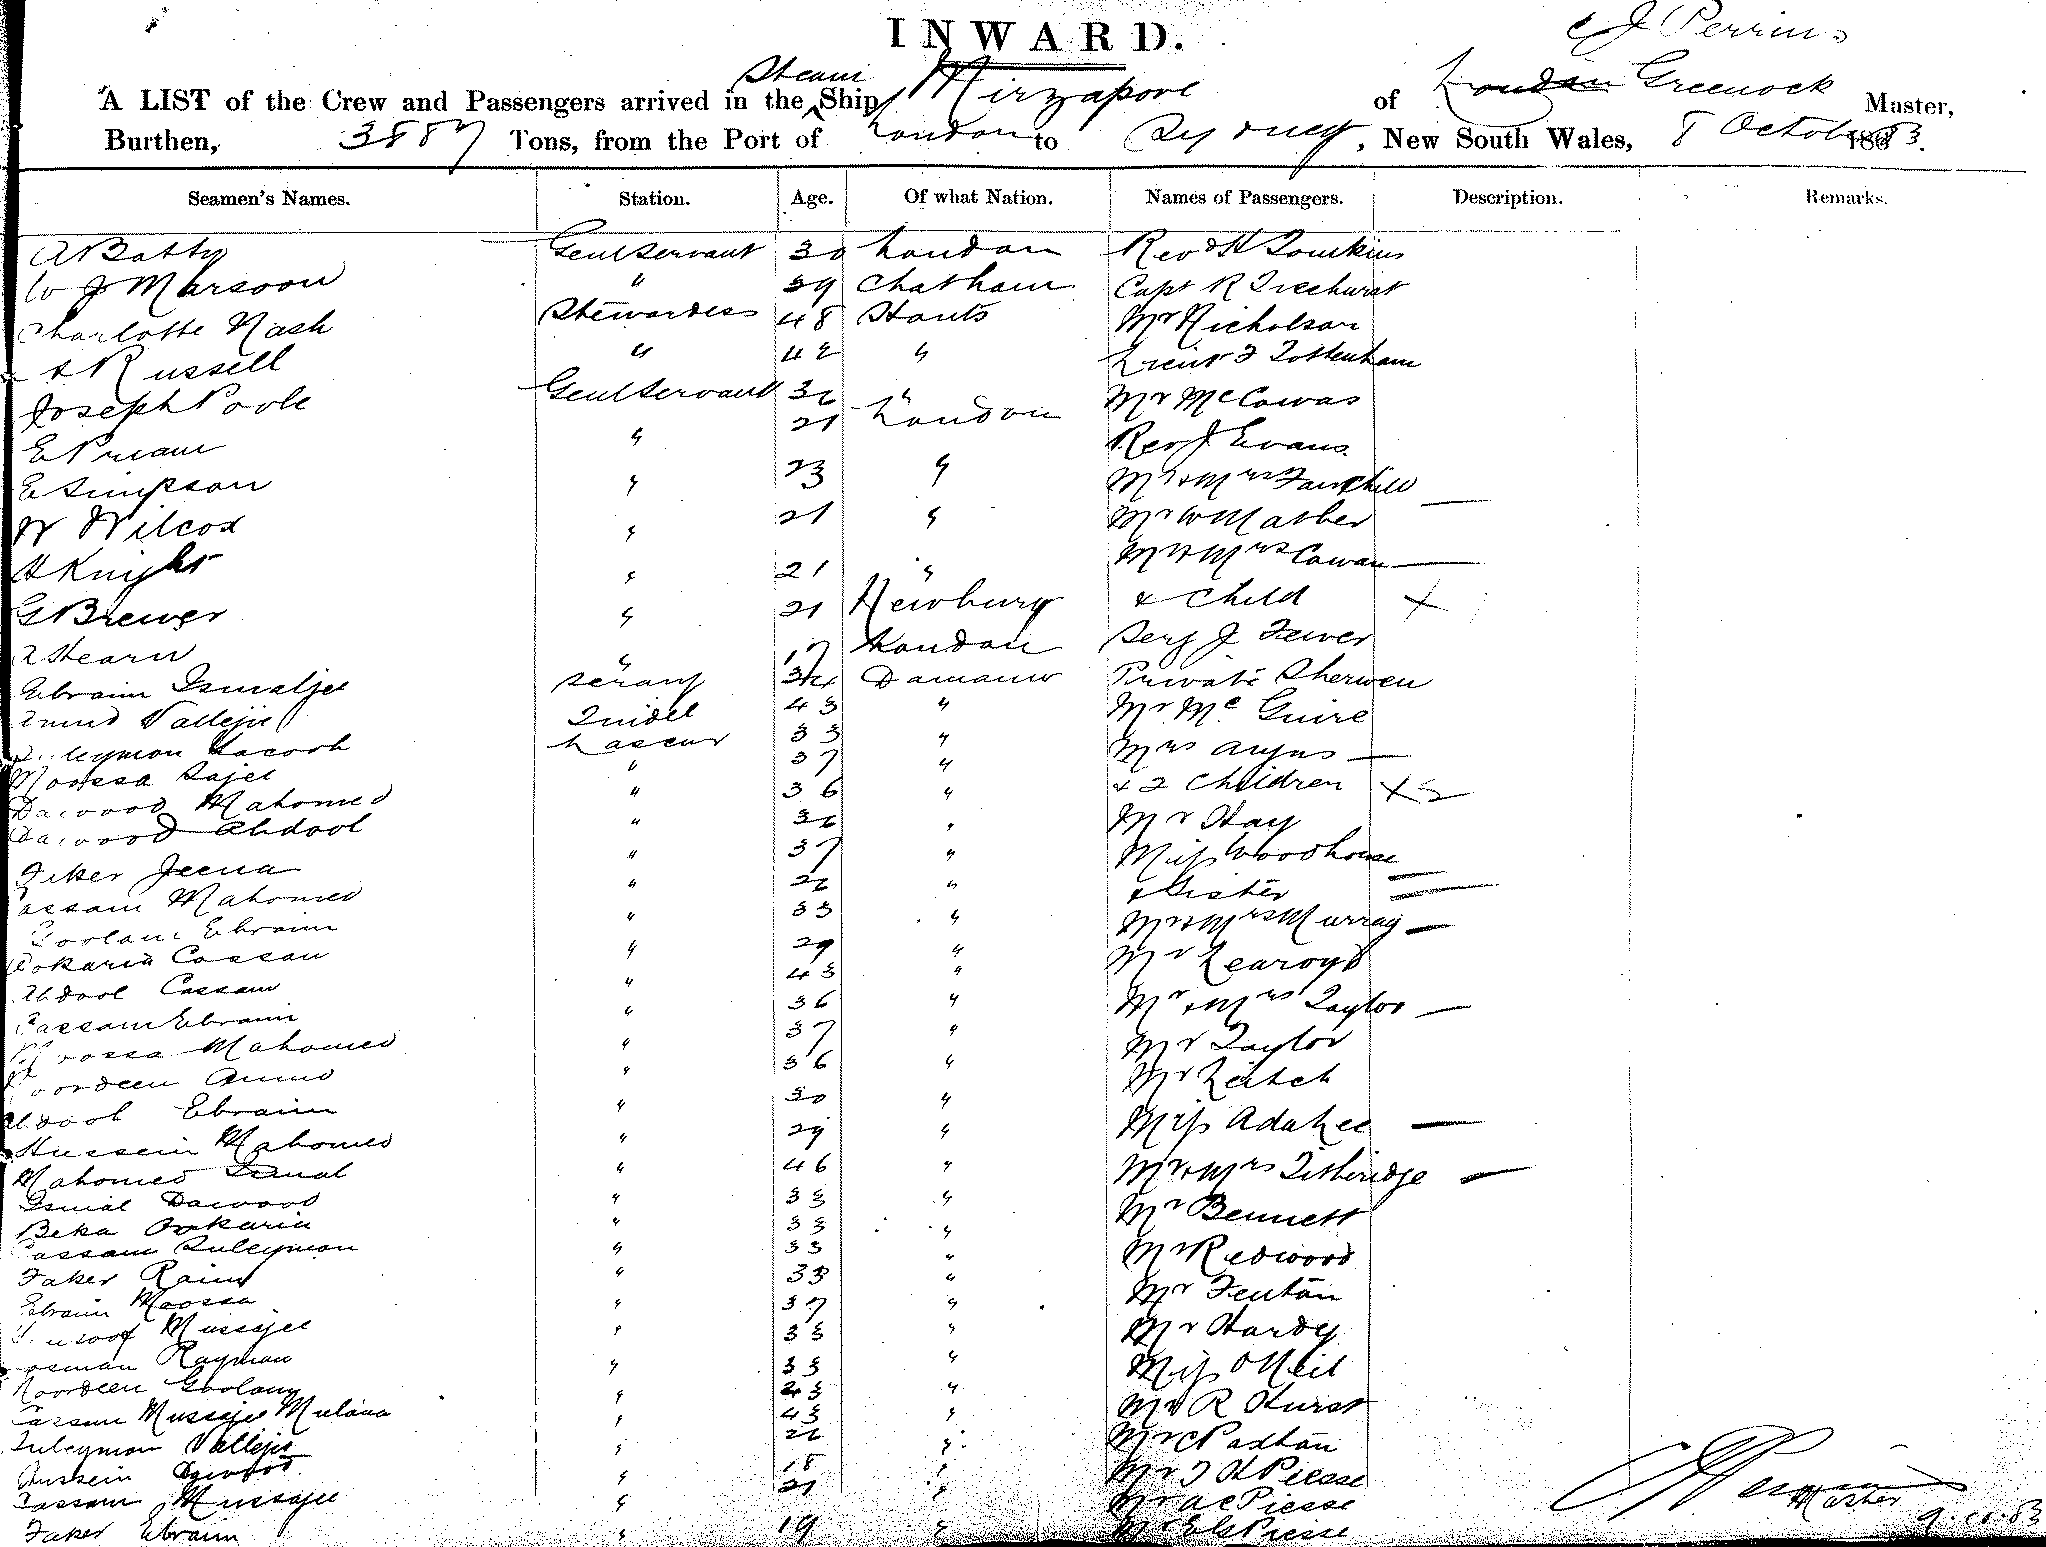 INWARD.
C J Perrins
A LIST of the Crew and Passengers arrived in the Steam Ship Mirzapore of London Greenock Master,
Burthen, 3887 Tons, from the Port of London to Sydney, New South Wales, 8 October 1883.
Seamen's Names. Station. Age. Of what Nation. Names of Passengers. Description. Remarks.
A Batty Genl Servant 30 London Revd H Tomkins
W J Marsoon " 39 Chatham Capt R Ticehurst
Charlotte Nash Stewardess 48 Hants Mr Nicholson
A Russell " 42 " Lieut F Tottenham
Joseph Poole Genl Servant 32 " Mr McCowas
E Priam " 21 London Rev J Evans
E Simpson " 23 " Mr & Mrs Fairchild
W Wilcox " 21 " Mr W Mather
A Knight " 21 " Mr & Mrs Cowan
G Brewer " 21 Newbury & Child
Hearn " 17 London Serj J Fewer
Ebraim Ismaljee Serang 34 Damaun Private Sherwen
Vallejee Tindel 43 " Mr McGuire
Suleymon Lascar 33 " Mrs Angus
Moossa " 37 " & 2 Children
Dawood Mahomed " 36 " Mr Hay
Dawood Abdool " 36 " Miss Woodhouse
Fiker Jeena " 37 " & Sister
Cassam Mahomed " 22 " Mr & Mrs Murray
Goolam Ebraim " 33 " Mr Learoyd
Cassan " 29 " Mr & Mrs Taylor
Abdool Cassam " 43 " Mr Taylor
Cassam Ebraim " 36 " Mr Leitch
Moossa Mahomed " 37 " Miss
Noordeen " 36 " Mr & Mrs Titheridge
Abdool Ebraim " 30 " Mr Bennett
Hussein Mahomed " 29 " Mr Redwood
Mahomed Ismal " 46 " Mr Fenton
Ismal Dawood " 33 " Mr Hardy
Beka " 33 " Miss O Neil
Cassam Suleymon " 33 " Mr R Hurst
Faker " 33 " Mr C Paxton
Ebraim Moossa " 37 " Mr F H Piesse
Mussajee " 33 " Mr A C Piesse
Rayman " 33 " Mr Piesse
Noordeen Goolam " 23 "
Cassam Mussajee " 43 "
Suleymon Vallejee " 22 "
Hussein Dawood " 18 "
Cassam Mussajee " 21 "
Faker Ebraim " 19 "
Master
9.10.83